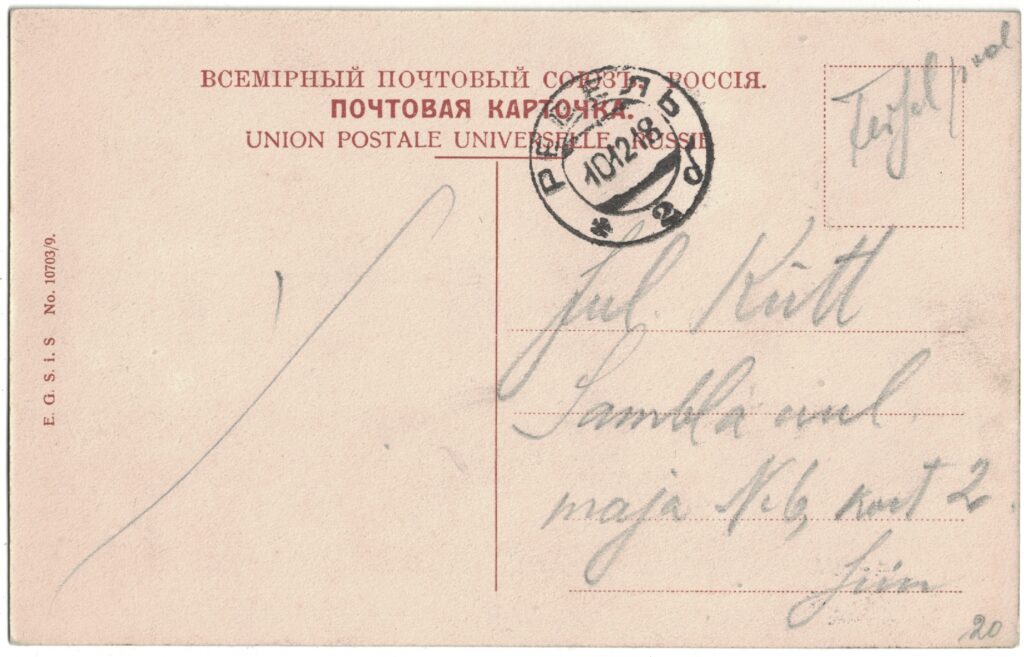 ВСЕМІРНЫЙ ПОЧТОВЫЙ СОЮЗЪ. РОССІЯ.
ПОЧТОВАЯ КАРТОЧКА.
UNION POSTALE UNIVERSELLE. RUSSIE
РЕВЕЛЬ
101218
E. G. S. i. S No. 10703/9.
Jul. Kütt
Sambla uul.
maja № 6, kort 2.
Siin
20